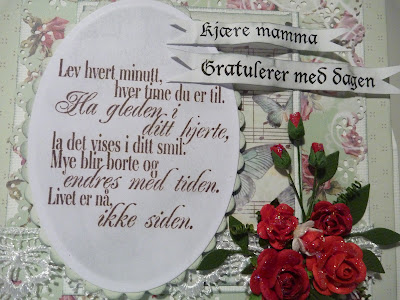 Kjære mamma
Gratulerer med dagen
Lev hvert minutt,
hver time du er til.
Ha gleden i
ditt hjerte,
la det vises i ditt smil.
Mye blir borte og
endres med tiden.
Livet er nå,
ikke siden.